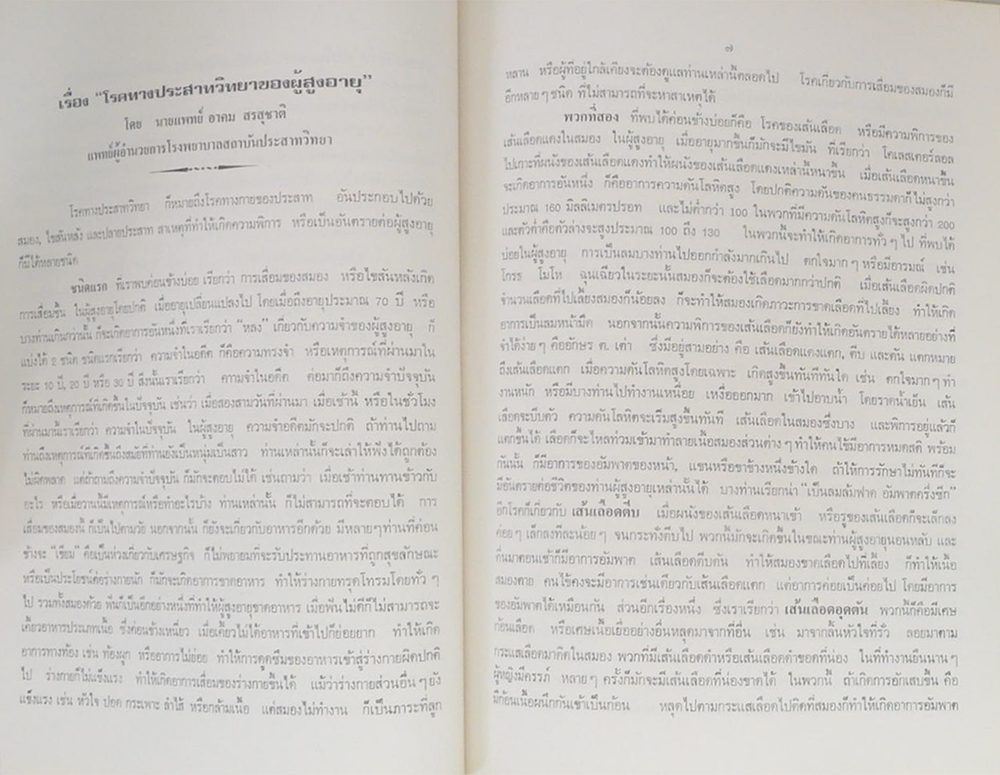 เรื่อง "โรคทางประสาทวิทยาของผู้สูงอายุ"
โดย นายแพทย์ อาคม สรสุชาติ
แพทย์ผู้อำนวยการโรงพยาบาลสถาบันประสาทวิทยา
โรคทางประสาทวิทยา ก็หมายถึงโรคทางกายของประสาท อันประกอบไปด้วย
สมอง, ไขสันหลัง และปลายประสาท สาเหตุที่ทำให้เกิดความพิการ หรือเป็นอันตรายต่อผู้สูงอายุ
ก็มีได้หลายชนิด
ชนิดแรก ที่เราพบค่อนข้างบ่อย เรียกว่า การเสื่อมของสมอง หรือไขสันหลังเกิด
การเสื่อมขึ้น ในผู้สูงอายุโดยปกติ เมื่ออายุเปลี่ยนแปลงไป โดยเมื่อถึงอายุประมาณ 70 ปี หรือ
บางท่านเกินกว่านั้น ก็จะเกิดอาการอันหนึ่งที่เราเรียกว่า "หลง" เกี่ยวกับความจำของผู้สูงอายุ ก็
แบ่งได้ 2 ชนิด ชนิดแรกเรียกว่า ความจำในอดีต ก็คือความทรงจำ หรือเหตุการณ์ที่ผ่านมาใน
ระยะ 10 ปี, 20 ปี หรือ 30 ปี สิ่งนั้นเราเรียกว่า ความจำในอดีต ต่อมาก็ถึงความจำปัจจุบัน
ก็หมายถึงเหตุการณ์ที่เกิดขึ้นในปัจจุบัน เช่นว่า เมื่อสองสามวันที่ผ่านมา เมื่อเช้านี้ หรือในชั่วโมง
ที่ผ่านมานี้เราเรียกว่า ความจำในปัจจุบัน ในผู้สูงอายุ ความจำอดีตมักจะปกติ ถ้าท่านไปถาม
ท่านถึงเหตุการณ์ที่เกิดขึ้นถึงสมัยที่ท่านยังเป็นหนุ่มเป็นสาว ท่านเหล่านั้นก็จะเล่าให้ฟังได้ถูกต้อง
ไม่ผิดพลาด แต่ถ้าถามถึงความจำปัจจุบัน ก็มักจะตอบไม่ได้ เช่นถามว่า เมื่อเช้าท่านทานข้าวกับ
อะไร หรือเมื่อวานนี้มีเหตุการณ์หรือทำอะไรไว้บ้าง ท่านเหล่านั้น ก็ไม่สามารถที่จะตอบได้ การ
เสื่อมของสมองนั้น ก็เป็นไปตามวัย นอกจากนั้น ก็ยังจะเกี่ยวกับอาหารอีกด้วย มีหลายๆท่านที่ค่อน
ข้างจะ "เขียม" คือเป็นห่วงเกี่ยวกับเศรษฐกิจ ก็ไม่พยายามที่จะรับประทานอาหารที่ถูกสุขลักษณะ
หรือเป็นประโยชน์ต่อร่างกายนัก ก็มักจะเกิดอาการขาดอาหาร ทำให้ร่างกายทรุดโทรมโดยทั่วๆ
ไป รวมทั้งสมองด้วย ฟันก็เป็นอีกอย่างหนึ่งที่ทำให้ผู้สูงอายุขาดอาหาร เมื่อฟันไม่ดีก็ไม่สามารถจะ
เคี้ยวอาหารประเภทเนื้อ ซึ่งค่อนข้างเหนียว เมื่อเคี้ยวไม่ได้อาหารที่เข้าไปก็ย่อยยาก ทำให้เกิด
อาการทางท้อง เช่น ท้องผูก หรืออาการไม่ย่อย ทำให้การดูดซึมของอาหารเข้าสู่ร่างกายผิดปกติ
ไป ร่างกายก็ไม่แข็งแรง ทำให้เกิดการเสื่อมของร่างกายขึ้นได้ แม้ว่าร่างกายส่วนอื่นๆยัง
แข็งแรง เช่น หัวใจ ปอด กระเพาะ ลำไส้ หรือกล้ามเนื้อ แต่สมองไม่ทำงาน ก็เป็นภาระที่ลูก
๗
หลาน หรือผู้ที่อยู่ใกล้เคียงจะต้องดูแลท่านเหล่านี้ตลอดไป โรคเกี่ยวกับการเสื่อมของสมองก็มี
อีกหลายๆชนิด ที่ไม่สามารถที่จะหาสาเหตุได้
พวกที่สอง ที่พบได้ค่อนข้างบ่อยก็คือ โรคของเส้นเลือด หรือมีความพิการของ
เส้นเลือดแดงในสมอง ในผู้สูงอายุ เมื่ออายุมากขึ้นก็มักจะมีไขมัน ที่เรียกว่า โคเลสเตอร์ลอล
ไปเกาะที่ผนังของเส้นเลือดแดงทำให้ผนังของเส้นเลือดแดงเหล่านี้หนาขึ้น เมื่อเส้นเลือดหนาขึ้น
จะเกิดอาการอันหนึ่ง ก็คืออาการความดันโลหิตสูง โดยปกติความดันของคนธรรมดาก็ไม่สูงกว่า
ประมาณ 160 มิลลิเมตรปรอท และไม่ต่ำกว่า 100 ในพวกที่มีความดันโลหิตสูงก็จะสูงกว่า 200
และตัวต่ำคือตัวล่างจะสูงประมาณ 100 ถึง 130 ในพวกนี้จะทำให้เกิดอาการทั่วๆไป ที่พบได้
บ่อยในผู้สูงอายุ การเป็นลมบางท่านไปออกกำลังมากเกินไป ตกใจมากๆหรือมีอารมณ์ เช่น
โกรธ โมโห ฉุนเฉียวในระยะนั้นสมองก็จะต้องใช้เลือดมากกว่าปกติ เมื่อเส้นเลือดผิดปกติ
จำนวนเลือดที่ไปเลี้ยงสมองก็น้อยลง ก็จะทำให้สมองเกิดภาวะการขาดเลือดที่ไปเลี้ยง ทำให้เกิด
อาการเป็นลมหน้ามืด นอกจากนั้นความพิการของเส้นเลือดก็ยังทำให้เกิดอันตรายได้หลายอย่างที่
จำได้ง่ายๆ คืออักษร ต. เต่า ซึ่งมีอยู่สามอย่าง คือ เส้นเลือดแดงแตก, ตีบ และตัน แตกหมาย
ถึงเส้นเลือดแตก เมื่อความดันโลหิตสูงโดยเฉพาะ เกิดสูงขึ้นทันทีทันใด เช่น ตกใจมากๆ ทำ
งานหนัก หรือมีบางท่านไปทำงานเหนื่อย เหงื่อออกมาก เข้าไปอาบน้ำ โดยราดน้ำเย็น เส้น
เลือดจะบีบตัว ความดันโลหิตจะเริ่มสูงขึ้นทันที เส้นเลือดในสมองซึ่งบาง และพิการอยู่แล้วก็
แตกขึ้นได้ เลือดก็จะไหลท่วมเข้ามาทำลายเนื้อสมองส่วนต่างๆ ทำให้คนไข้มีอาการหมดสติ พร้อม
กันนั้น ก็มีอาการของอัมพาตของหน้า, แขนหรือขาข้างหนึ่งข้างใด ถ้าให้การรักษาไม่ทันทีก็จะ
มีอันตรายต่อชีวิตของท่านผู้สูงอายุเหล่านั้นได้ บางท่านเรียกนว่า "เป็นลมล้มฟาด อัมพาตครึ่งซีก"
อีกโรคก็เกี่ยวกับ เส้นเลือดตีบ เมื่อผนังของเส้นเลือดหนาเข้า หรือรูของเส้นเลือดก็จะเล็กลง
ค่อยๆ เล็กลงทีละน้อยๆ จนกระทั่งตีบไป พวกนี้มักจะเกิดขึ้นในขณะท่านผู้สูงอายุนอนหลับ และ
ตื่นมาตอนเช้าก็มีอาการอัมพาต เส้นเลือดตีบตัน ทำให้สมองขาดเลือดไปที่เลี้ยง ก็ทำให้เนื้อ
สมองตาย คนไข้คงจะมีอาการเช่นเดียวกับเส้นเลือดแตก แต่อาการค่อยเป็นค่อยไป โดยมีอาการ
ของอัมพาตได้เหมือนกัน ส่วนอีกเรื่องหนึ่ง ซึ่งเราเรียกว่า เส้นเลือดอุดตัน พวกนี้ก็คือมีเศษ
ก้อนเลือด หรือเศษเนื้อเยื่ออย่างอื่นหลุดมาจากที่อื่น เช่น มาจากลิ้นหัวใจที่รั่ว ลอยมาตาม
กระแสเลือดมาติดในสมอง พวกที่มีเส้นเลือดดำหรือเส้นเลือดดำขอดที่น่อง ในที่ทำงานยืนนานๆ
ผู้หญิงมีครรภ์ หลายๆ ครั้งก็มักจะมีเส้นเลือดที่น่องขาดได้ ในพวกนี้ ถ้าเกิดการอักเสบขึ้น คือ
มีก้อนเนื้อผนึกกันเข้าเป็นก้อน หลุดไปตามกระแสเลือดไปติดที่สมองก็ทำให้เกิดอาการอัมพาต